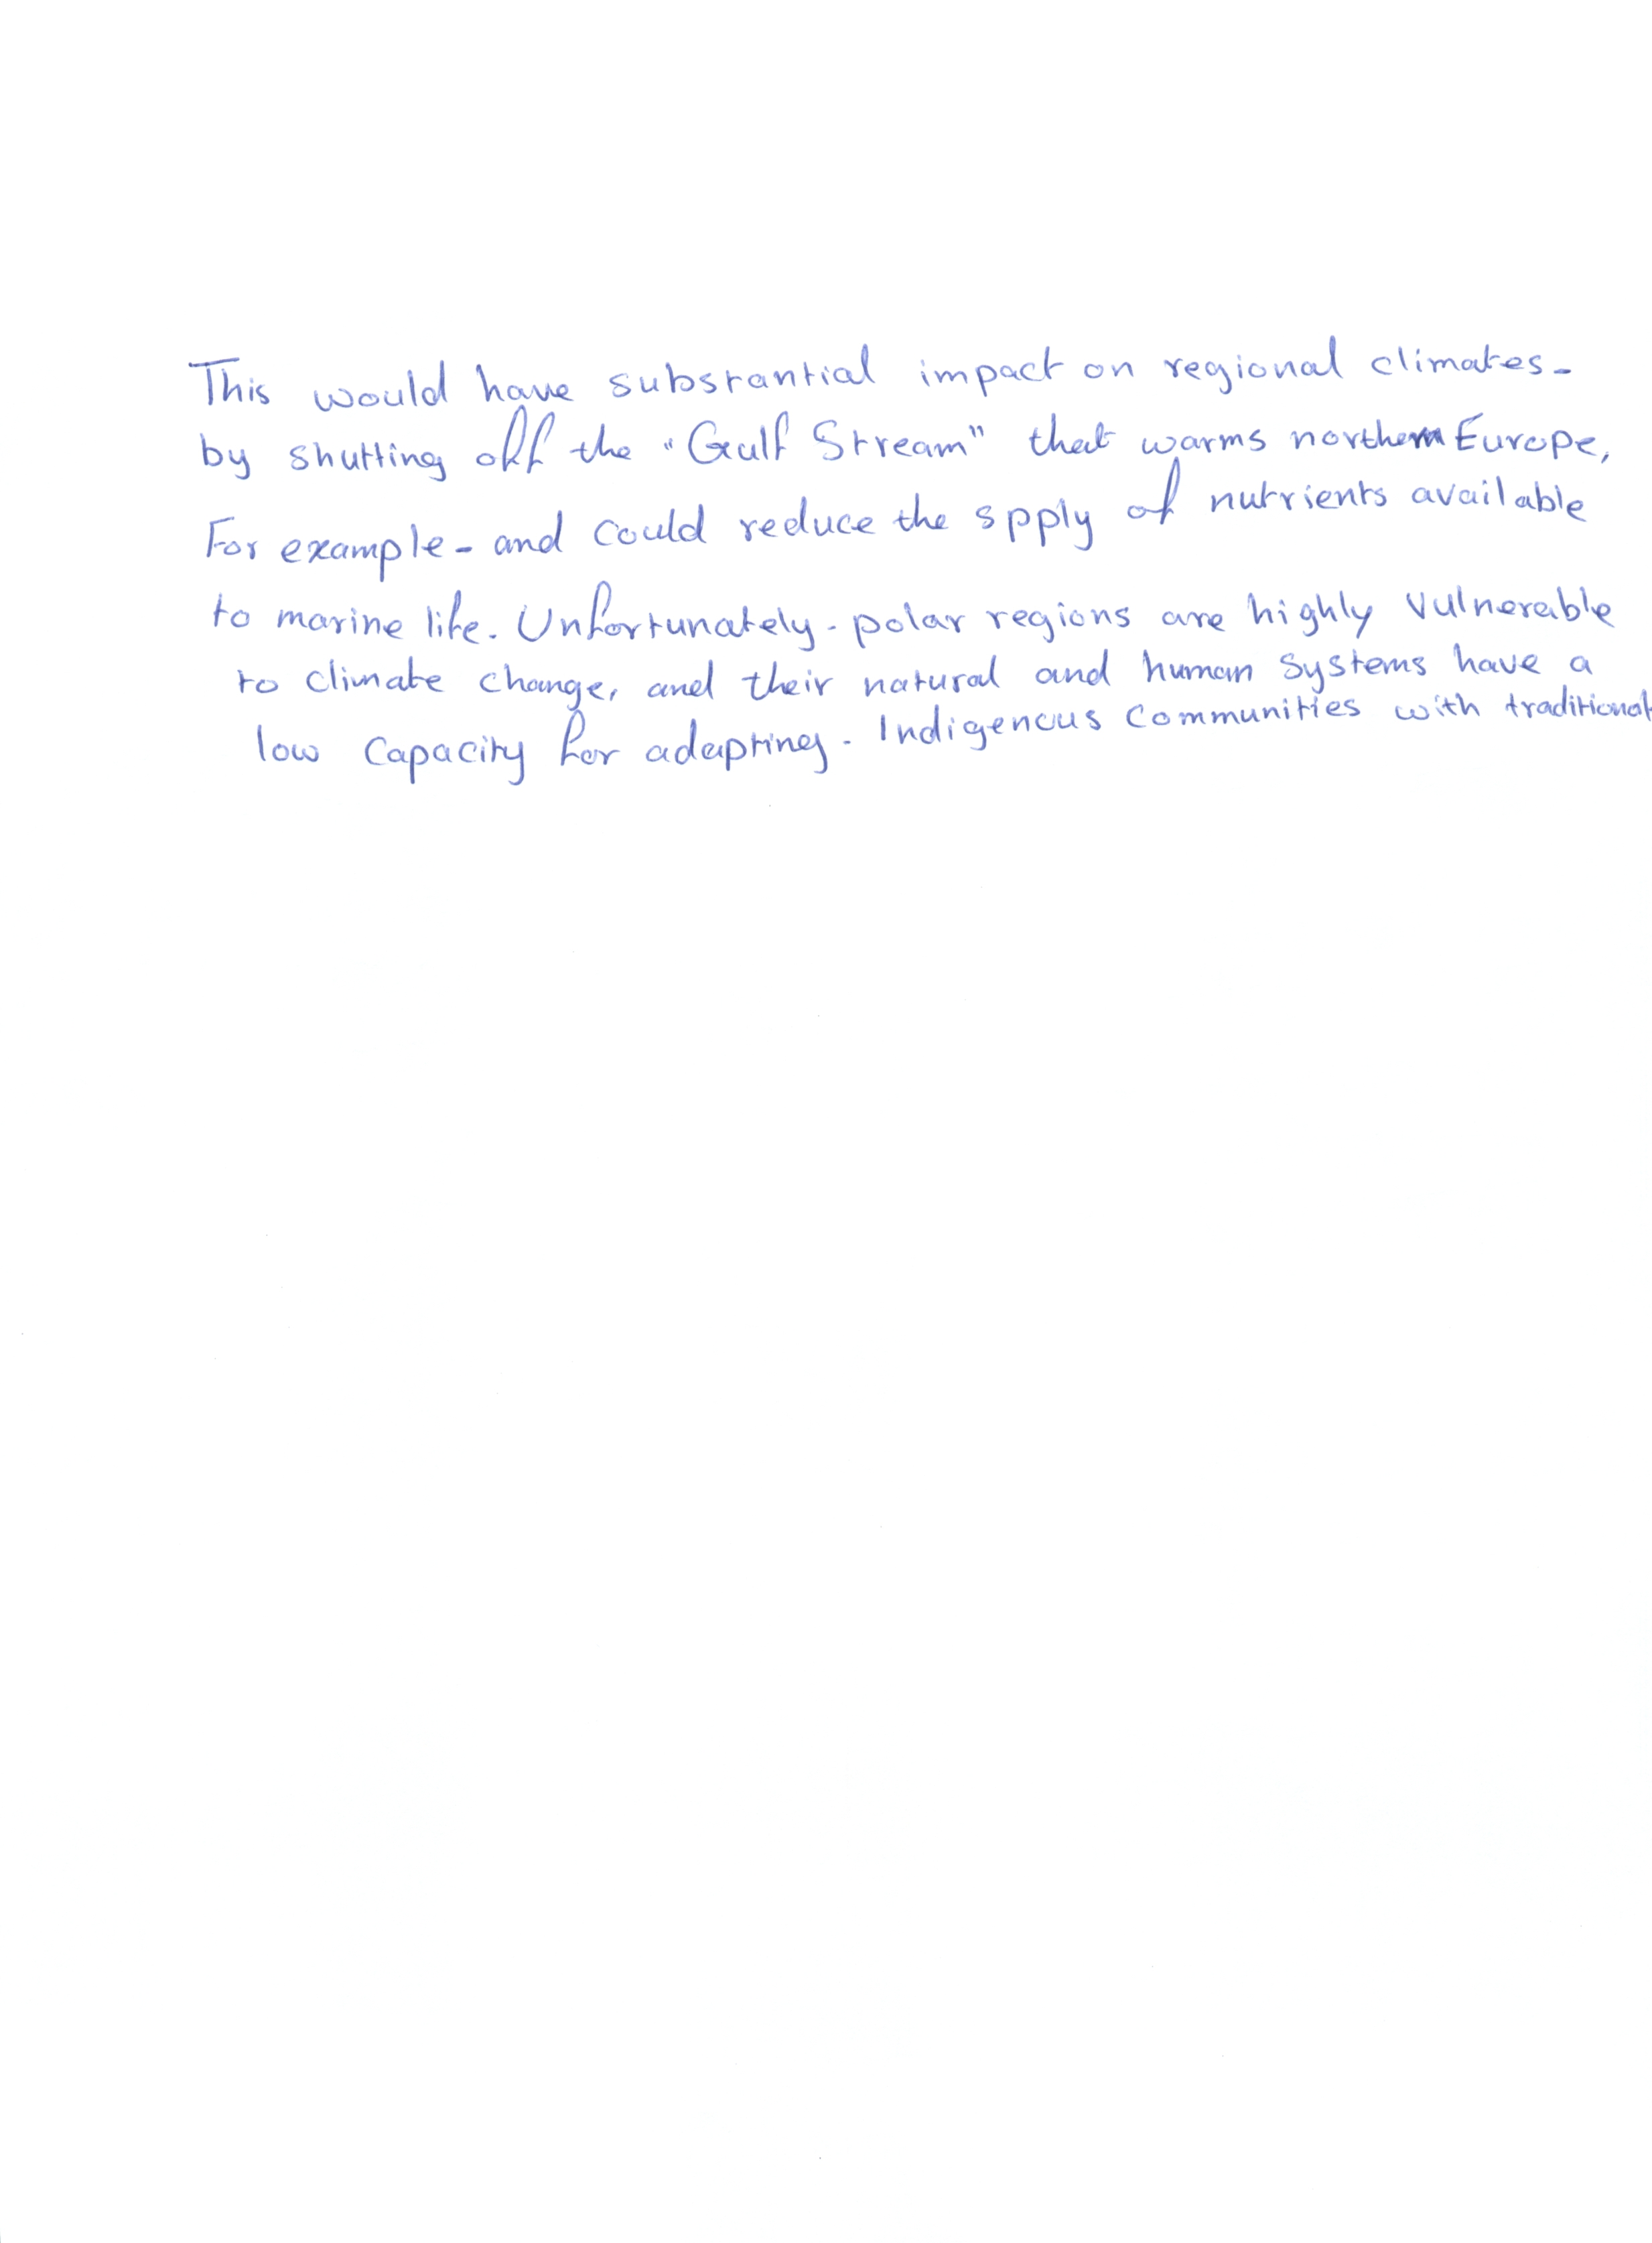 This would have substantial impact on regional climates-
by shutting off the "Gulf Stream" that warms northern Europe,
For example - and could reduce the spply of nutrients available
to marine life. Unfortunately - polar regions are highly vulnerable
to climate change, and their natural and human systems have a
low capacity for adapting. Indigenous communities with traditional